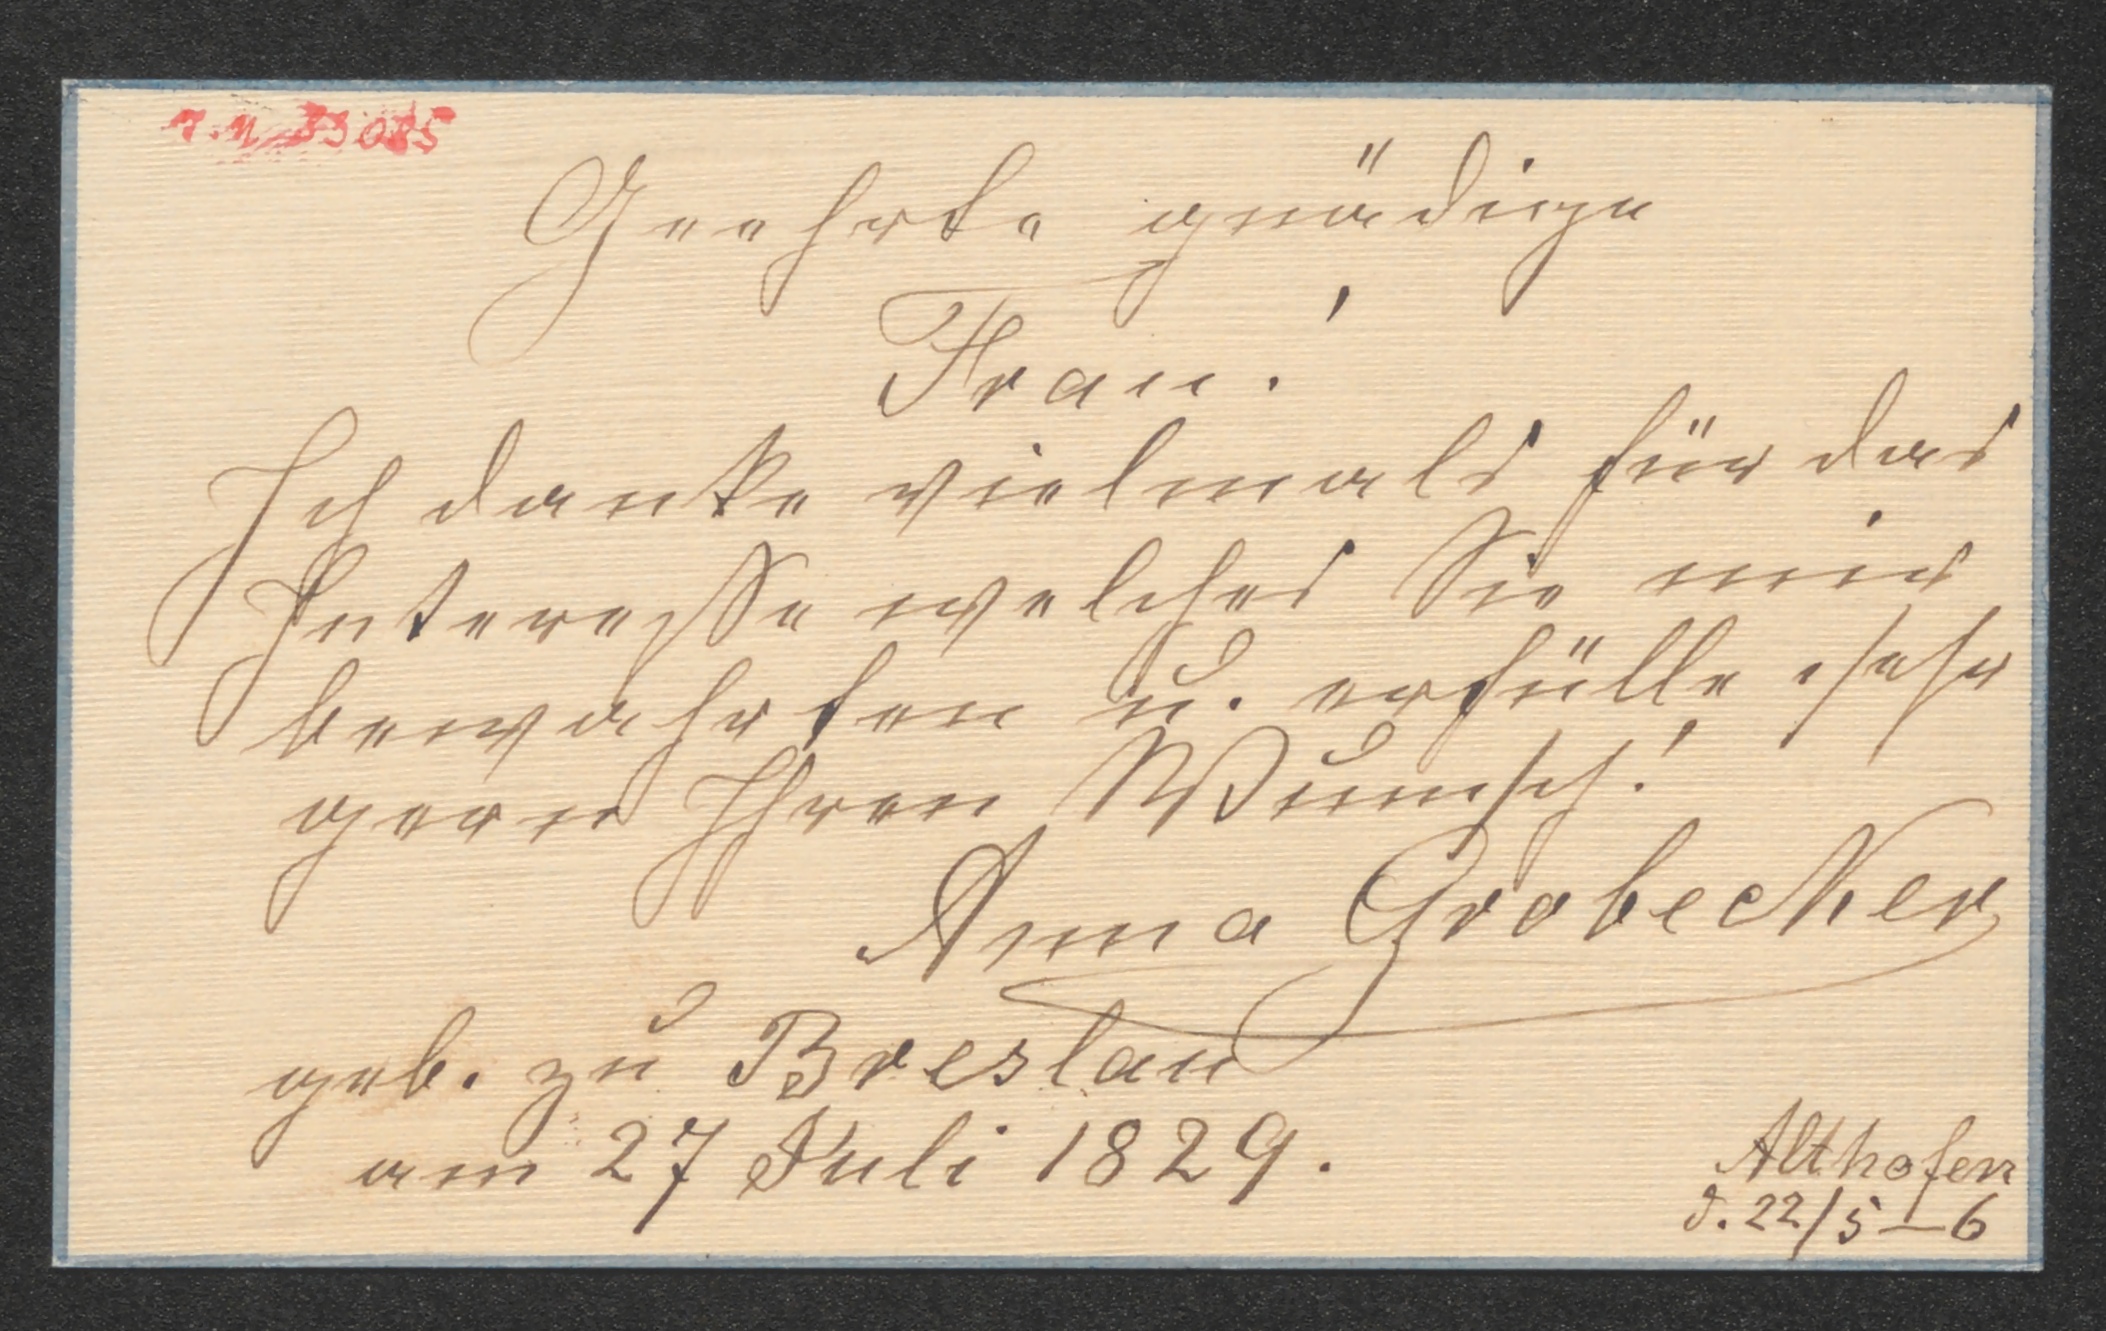 I.N. 33085
Geehrte gnädige
Frau!
Ich danke vielmals für das
Interesse welches Sie mir
bewahrten u. erfülle sehr
gern Ihren Wunsch!
Anna Grobecker
geb. zu Breslau
am 27 Juli 1829.
Althofen
d. 22/5–6